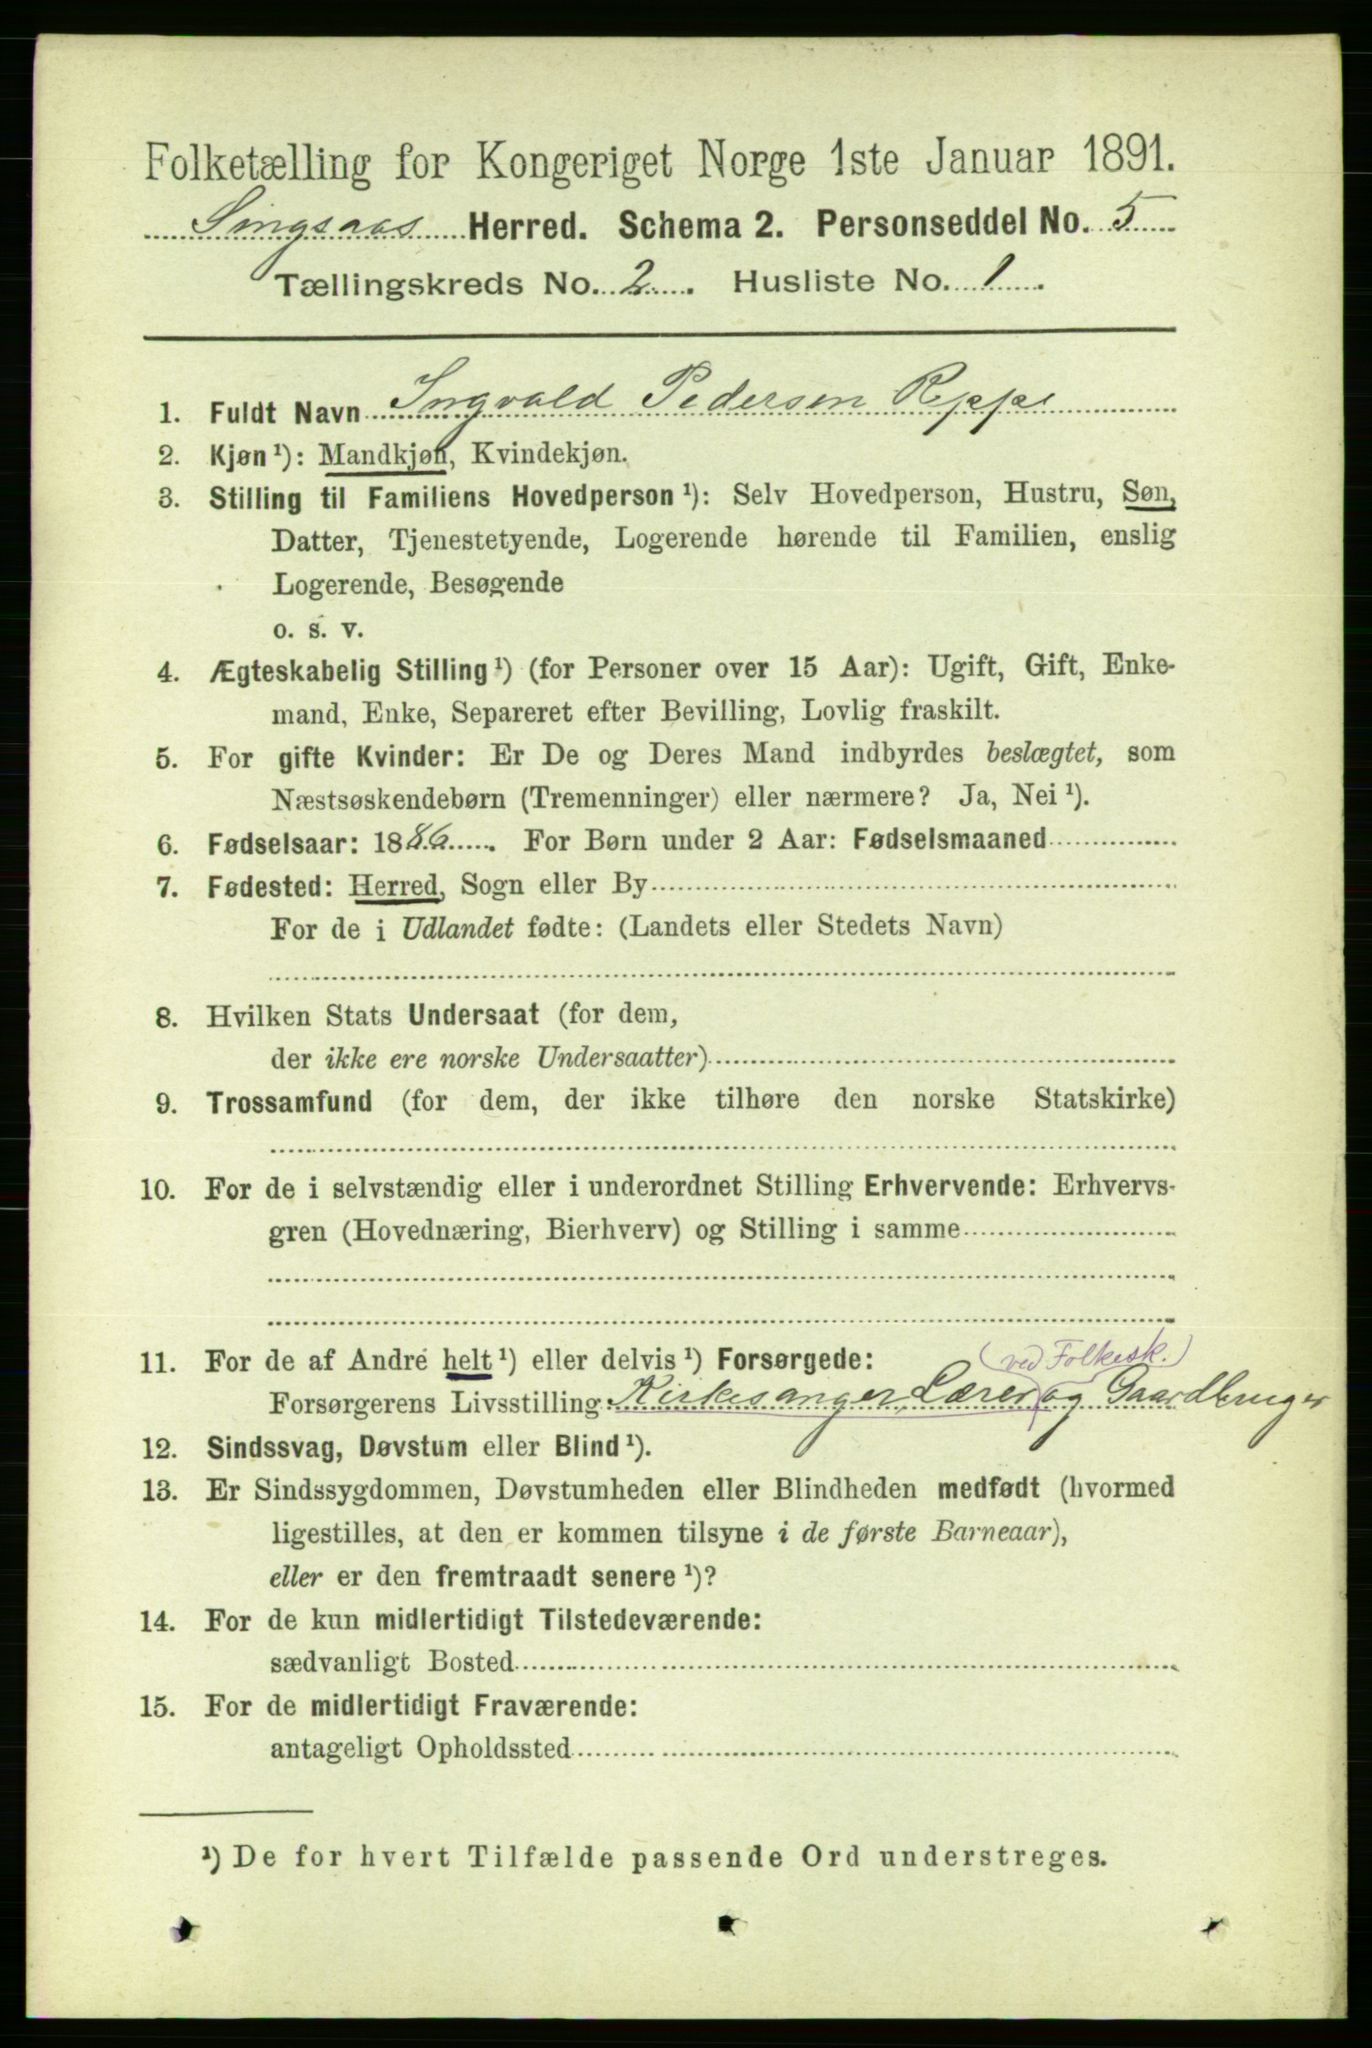 Folketælling for Kongeriget Norge 1ste Januar 1891.
Singsaas Herred. Schema 2. Personseddel No. 5
Tællingskreds No. 2. Husliste No. 1.
1. Fuldt Navn Ingvald Pedersen Reppe
2. Kjøn¹): Mandkjøn, Kvindekjøn.
3. Stilling til Familiens Hovedperson¹): Selv Hovedperson, Hustru, Søn,
Datter, Tjenestetyende, Logerende hørende til Familien, enslig
Logerende, Besøgende
o. s. v.
4. Ægteskabelig Stilling¹) (for Personer over 15 Aar): Ugift, Gift, Enke-
mand, Enke, Separeret efter Bevilling, Lovlig fraskilt.
5. For gifte Kvinder: Er De og Deres Mand indbyrdes beslægtet, som
Næstsøskendebørn (Tremenninger) eller nærmere? Ja, Nei¹).
6. Fødselsaar: 1886. For Børn under 2 Aar: Fødselsmaaned
7. Fødested: Herred, Sogn eller By
For de i Udlandet fødte: (Landets eller Stedets Navn)
8. Hvilken Stats Undersaat (for dem,
der ikke ere norske Undersaatter)
9. Trossamfund (for dem, der ikke tilhøre den norske Statskirke)
10. For de i selvstændig eller i underordnet Stilling Erhvervende: Erhvervs-
gren (Hovednæring, Bierhverv) og Stilling i samme
11. For de af Andre helt¹) eller delvis¹) Forsørgede: (ved Folkesk.)
Forsørgerens Livsstilling Kirkesanger, Lærer og Gaardbruger
12. Sindssvag, Døvstum eller Blind¹).
13. Er Sindssygdommen, Døvstumheden eller Blindheden medfødt (hvormed
ligestilles, at den er kommen tilsyne i de første Barneaar),
eller er den fremtraadt senere¹)?
14. For de kun midlertidigt Tilstedeværende:
sædvanligt Bosted
15. For de midlertidigt Fraværende:
antageligt Opholdssted
¹) De for hvert Tilfælde passende Ord understreges.